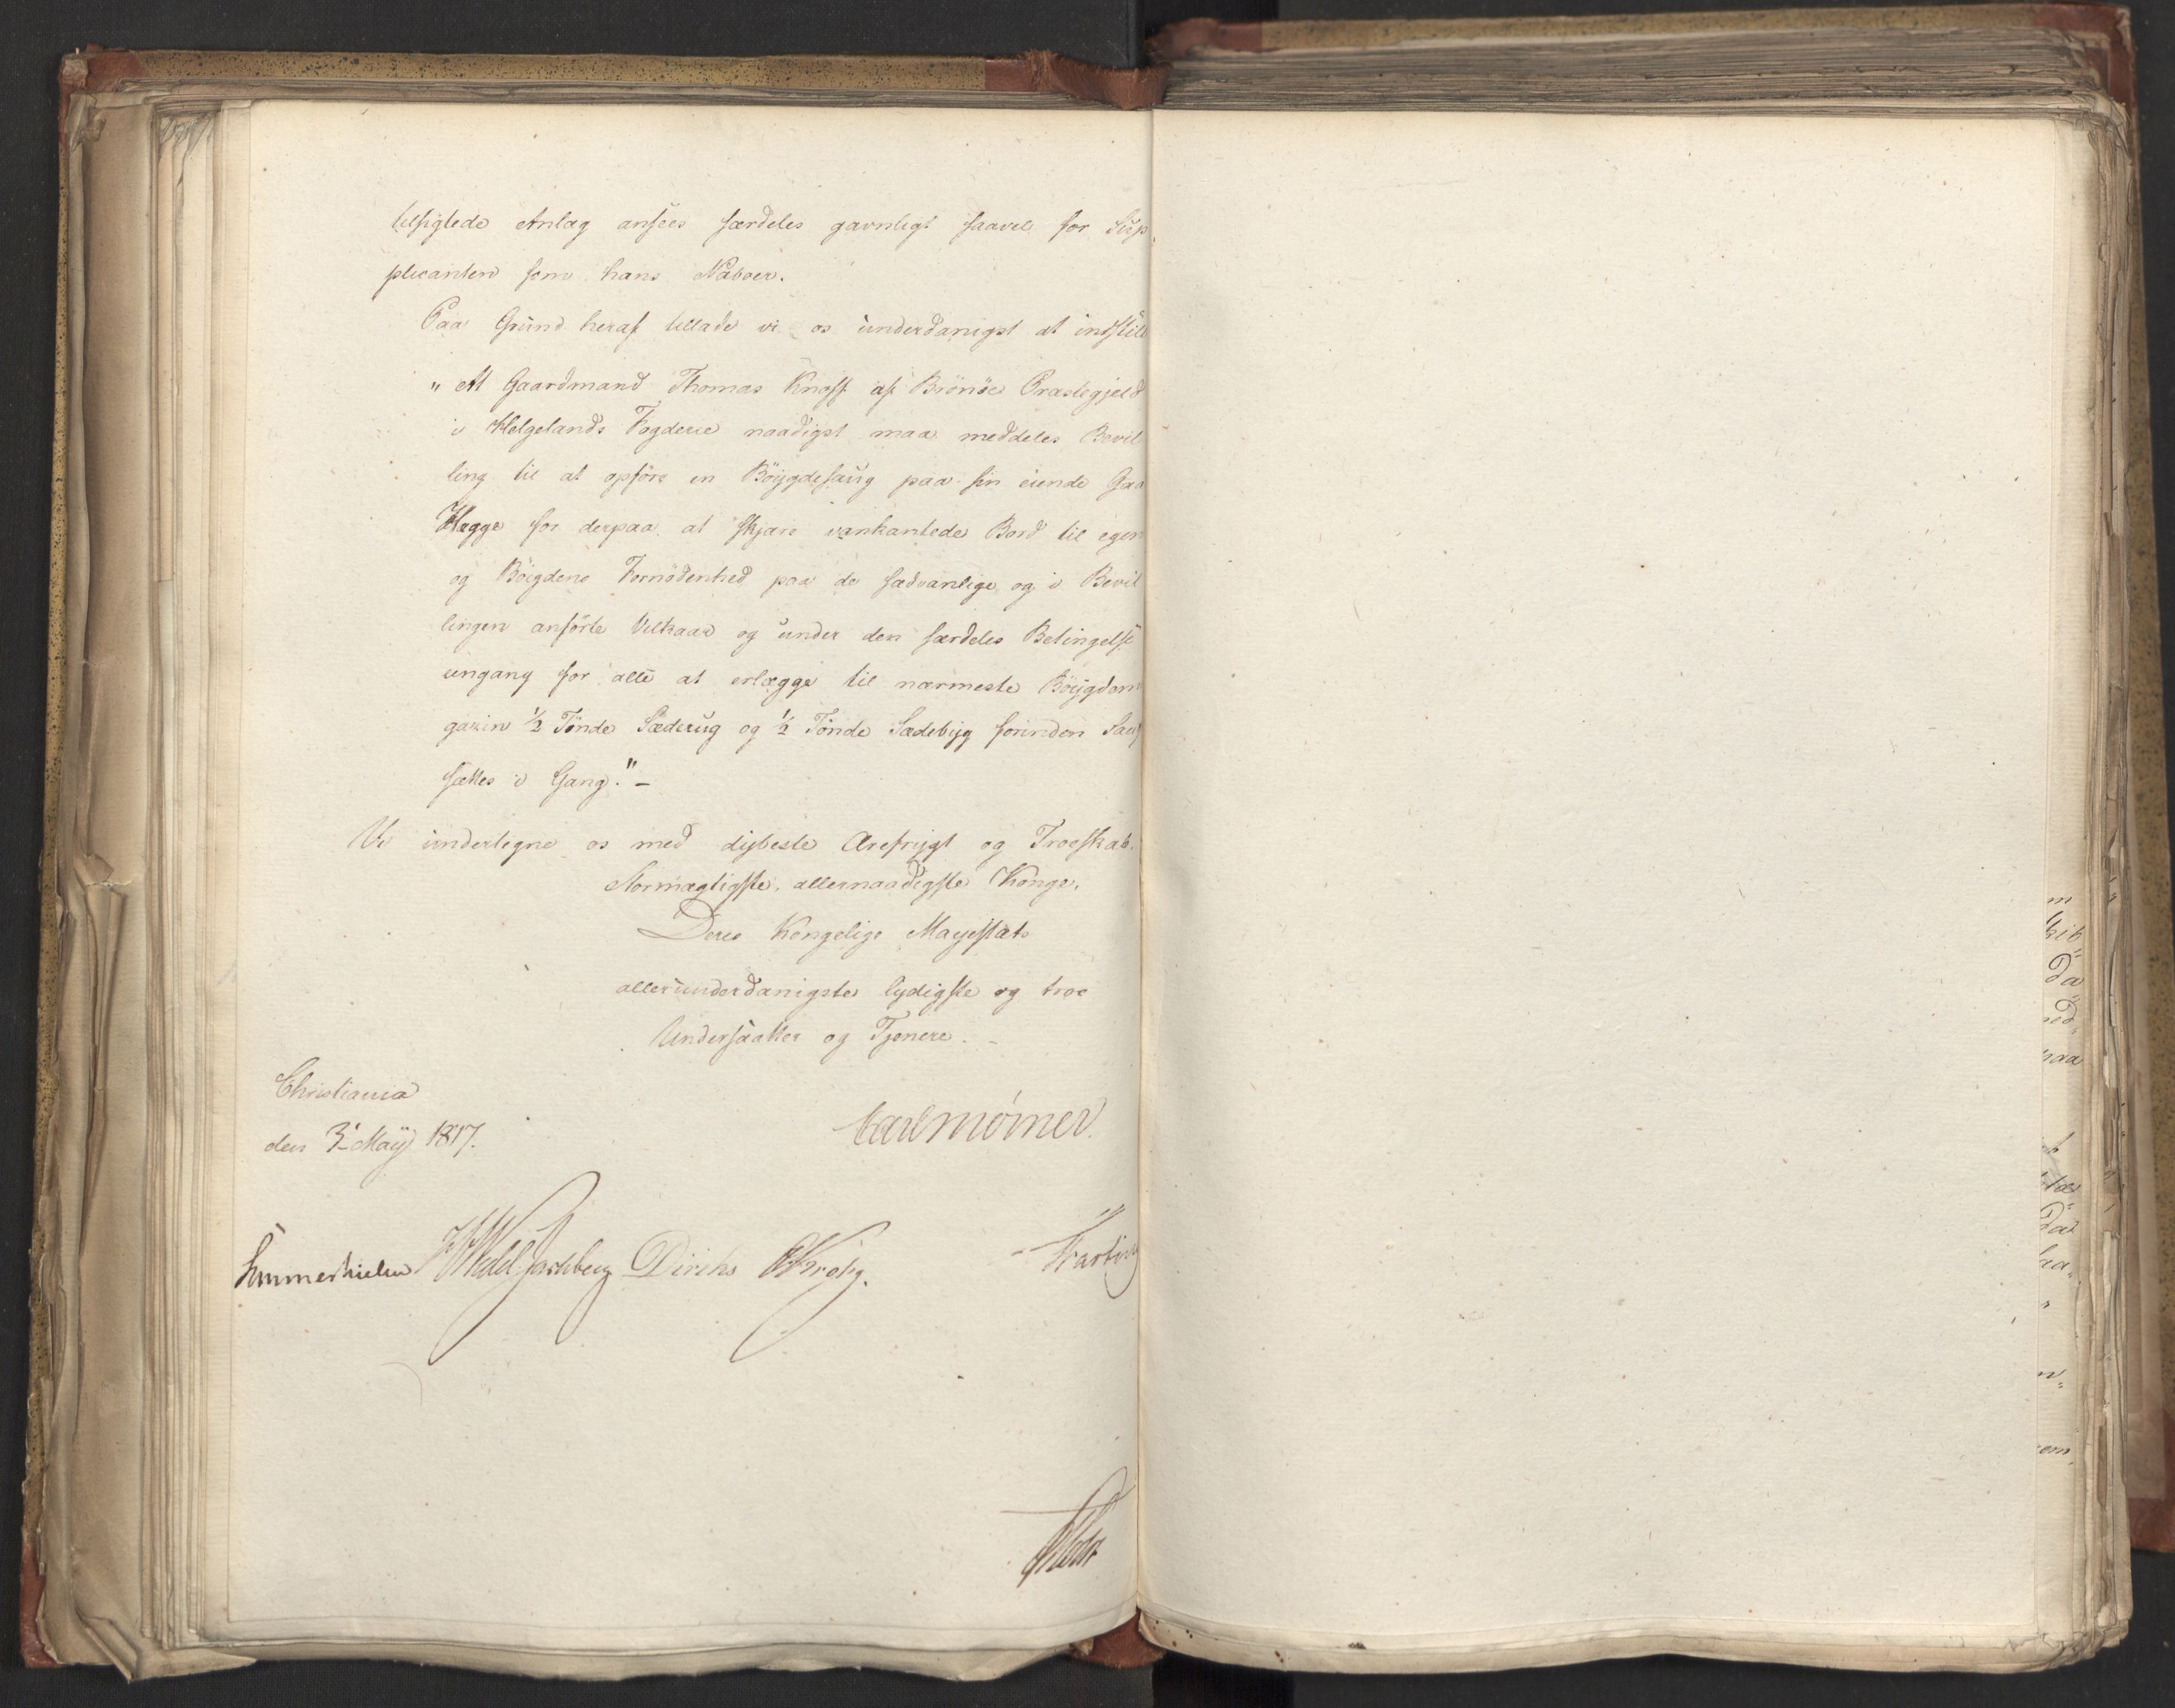 tilsigtede Anlæg ansees særdeles gavnligt saavel for Sup
plicanten som hans Naboer.
Paa Grund heraf tillade vi os underdanigst at indstill
"At Gaardmand Thomas Knoff af Brönöe Præstegjeld
i Helgelands Fogderie naadigst maa meddeles Bevil
ling til at opföre en Böygdesaug paa sin eiende Gaa
Hægge for derpaa at skjære vankantede Bord til egen
og Böigdens Fornödenhed paa de sædvanlige og i Bevil
lingen anförte Vilkaar og under den særdeles Betingelse
engang for alle at erlægge til nærmeste Böygdem
gazin ½ Tönde Sæderug og ½ Tönde Sædebyg forinden Sau
sættes i Gang." -
Vi undertegne os med dybeste Ærefrygt og Troeskab.
Stormægtigste, allernaadigste Konge,
Deres Kongelige Majestæts
allerunderdanigste lydigste og troe
Undersaatter og Tjenere. -
Christiania
den 3' May 1817.
Carl Mörner.
Sommerhielm WedelJarlsberg Diriks Krohg.